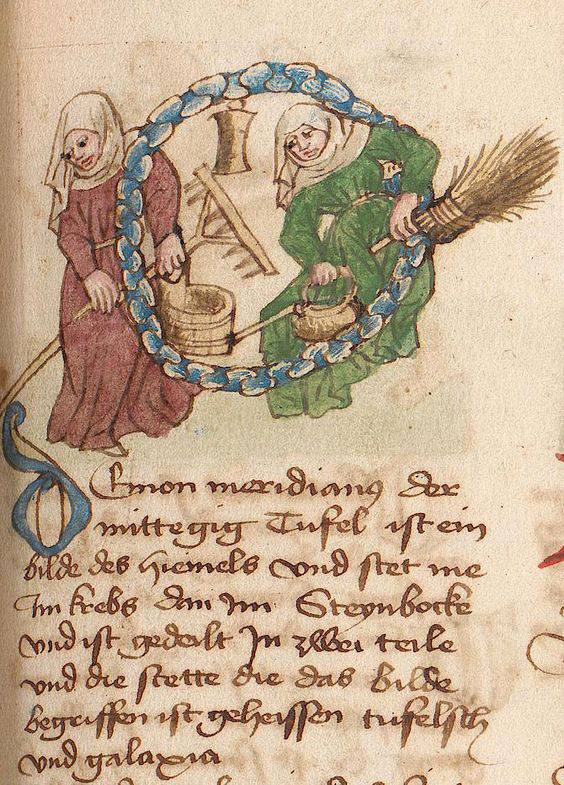 Demon meridianus der
mittegig Tufel ist ein
bilde des hiemels vnd stet me
Im krebs dan Im Steynbocke
vnd ist gedeilt In zwei teile
vnd die stette die das bilde
begriffen ist geheissen tufelsch
vnd galaxia